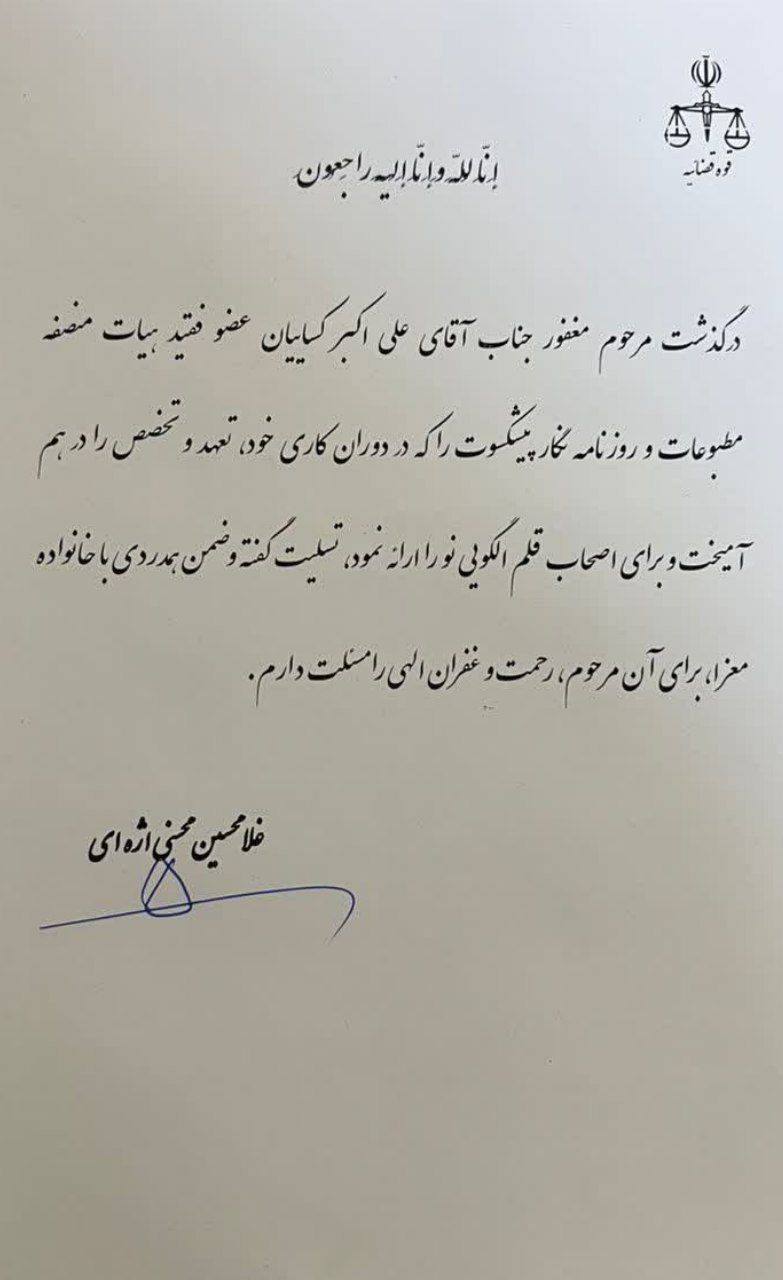 قوه قضائیه
إنّا للّه وإنّا إلیه راجعون
درگذشت مرحوم مغفور جناب آقای علی اکبر کساییان عضو فقید هیات منصفه
مطبوعات و روزنامه نگار پیشکسوت را که در دوران کاری خود، تعهد و تخصص را در هم
آمیخت و برای اصحاب قلم الگویی نو را ارائه نمود، تسلیت گفته و ضمن همدردی با خانواده
معزا، برای آن مرحوم، رحمت و غفران الهی را مسئلت دارم.
غلامحسین محسنی اژه ای